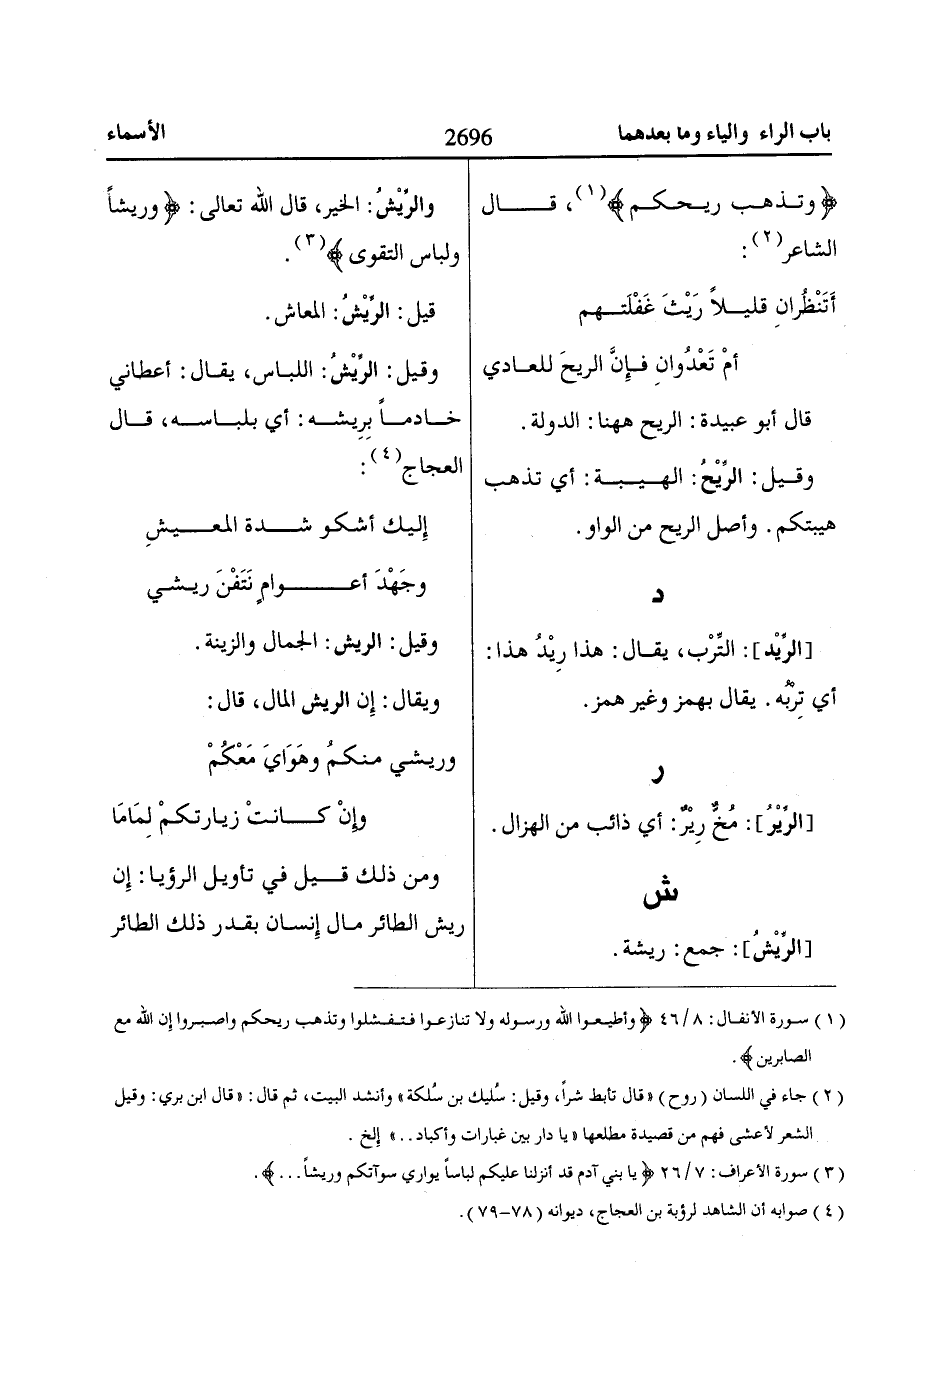 باب الراء والياء وما بعدهما
2696
الأسماء
﴿ وتذهب ريحكم ﴾(١)، قال
الشاعر(٢):
أَتَنْظُرانِ قليلاً رَيْثَ غَفْلَتهم
أمْ تَعْدُوانِ فإنَّ الريحَ للعادي
قال أبو عبيدة: الريح ههنا: الدولة.
وقيل: الرِّيْحُ: الهيبة: أي تذهب
هيبتكم. وأصل الريح من الواو.
د
[الرِّيْد]: التِّرْب، يقال: هذا رِيْدُ هذا:
أي تِرْبُه. يقال بهمز وغير همز.
ر
[الرِّيْرُ]: مُخٌّ رِيْرٌ: أي ذائب من الهزال.
ش
[الرِّيْشُ]: جمع: ريشة.
والرِّيْشُ: الخير، قال الله تعالى: ﴿ وريشاً
ولباس التقوى ﴾(٣).
قيل: الرِّيْشُ: المعاش.
وقيل: الرِّيْشُ: اللباس، يقال: أعطاني
خادماً بِرِيشه: أي بلباسه، قال
العجاج(٤):
إليك أشكو شدة المعيشِ
وجَهْدَ أعوامٍ نَتَفْنَ ريشي
وقيل: الريش: الجمال والزينة.
ويقال: إن الريش المال، قال:
وريشي منكمُ وهَوَايَ مَعْكُمْ
وإنْ كانتْ زيارتكمْ لِمَامَا
ومن ذلك قيل في تأويل الرؤيا: إن
ريش الطائر مال إنسان بقدر ذلك الطائر
(١) سورة الأنفال: ٤٦/٨ ﴿ وأطيعوا الله ورسوله ولا تنازعوا فتفشلوا وتذهب ريحكم واصبروا إن الله مع
الصابرين ﴾.
(٢) جاء في اللسان (روح) «قال تأبط شراً، وقيل: سُليك بن سُلكة» وأنشد البيت، ثم قال: «قال ابن بري: وقيل
الشعر لأعشى فهم من قصيدة مطلعها «يا دار بين غبارات وأكباد..» إلخ.
(٣) سورة الأعراف: ٢٦/٧ ﴿ يا بني آدم قد أنزلنا عليكم لباساً يواري سوآتكم وريشاً... ﴾.
(٤) صوابه أن الشاهد لرؤبة بن العجاج، ديوانه (٧٨-٧٩).